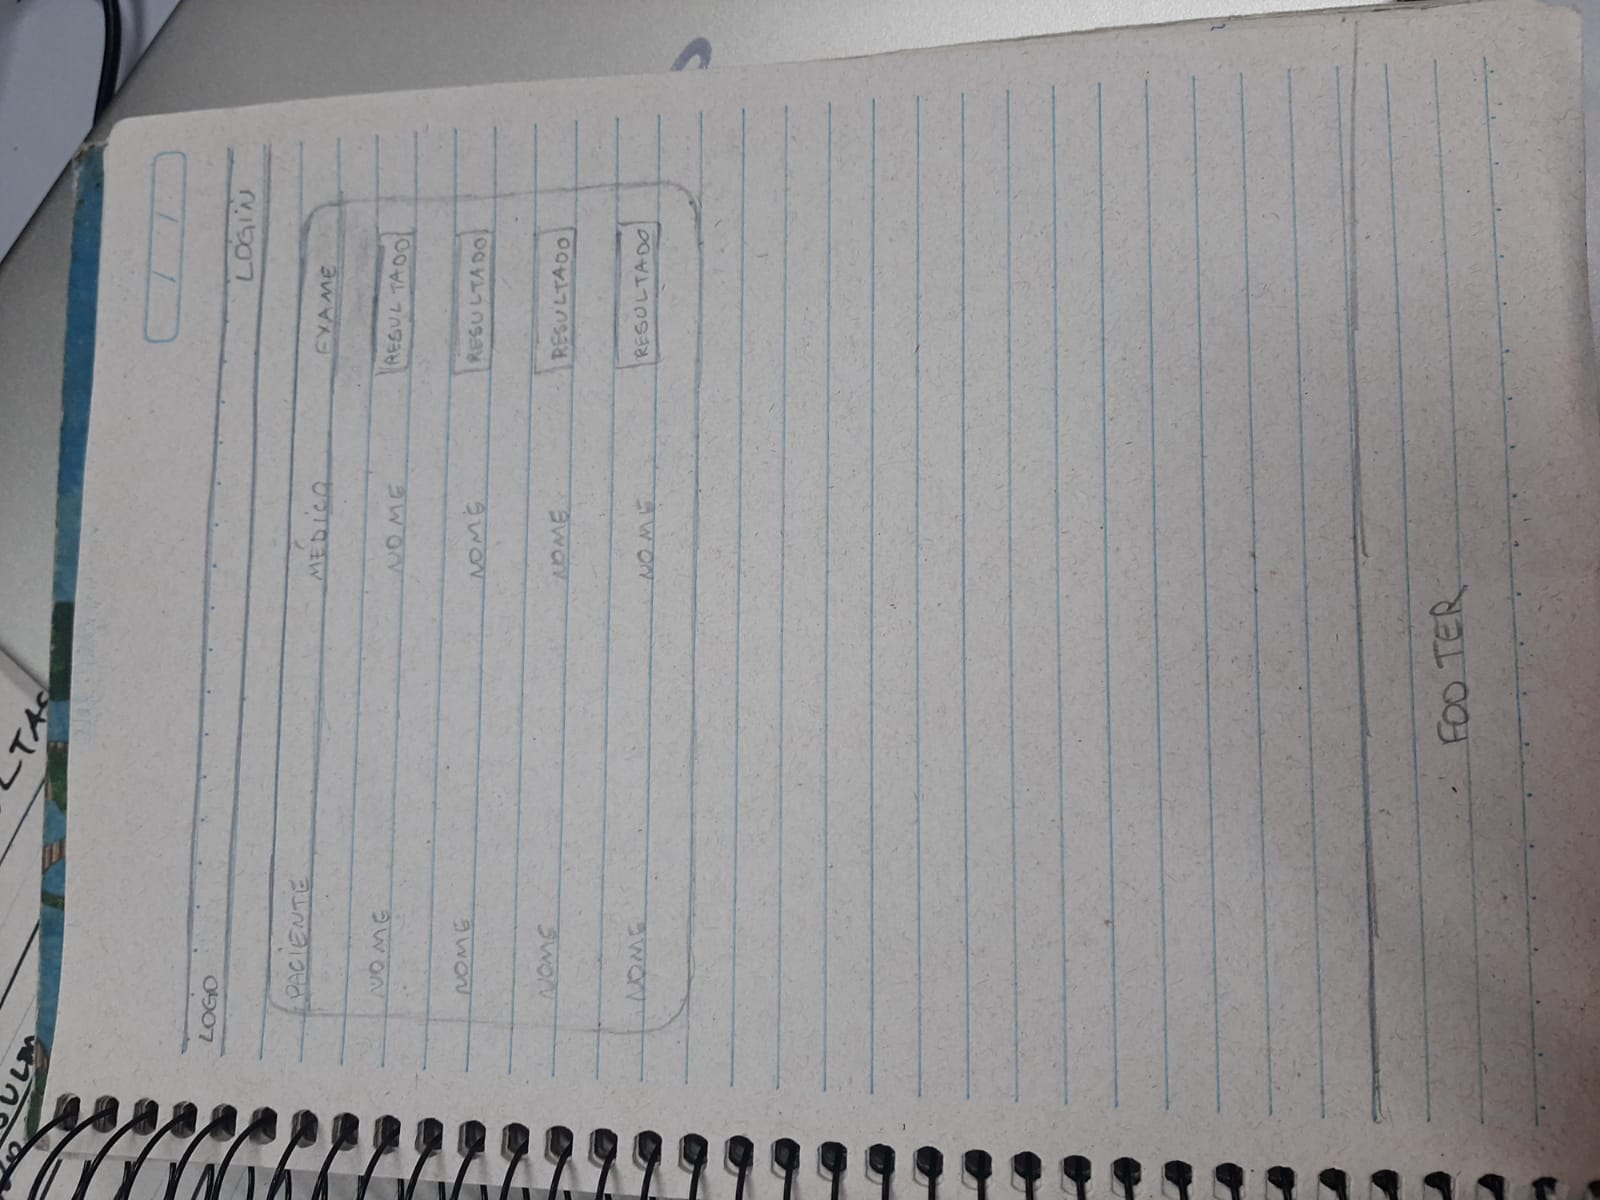 LOGO
LOGIN
PACIENTE MÉDICO EXAME
NOME NOME RESULTADO
NOME NOME RESULTADO
NOME NOME RESULTADO
NOME NOME RESULTADO
FOOTER